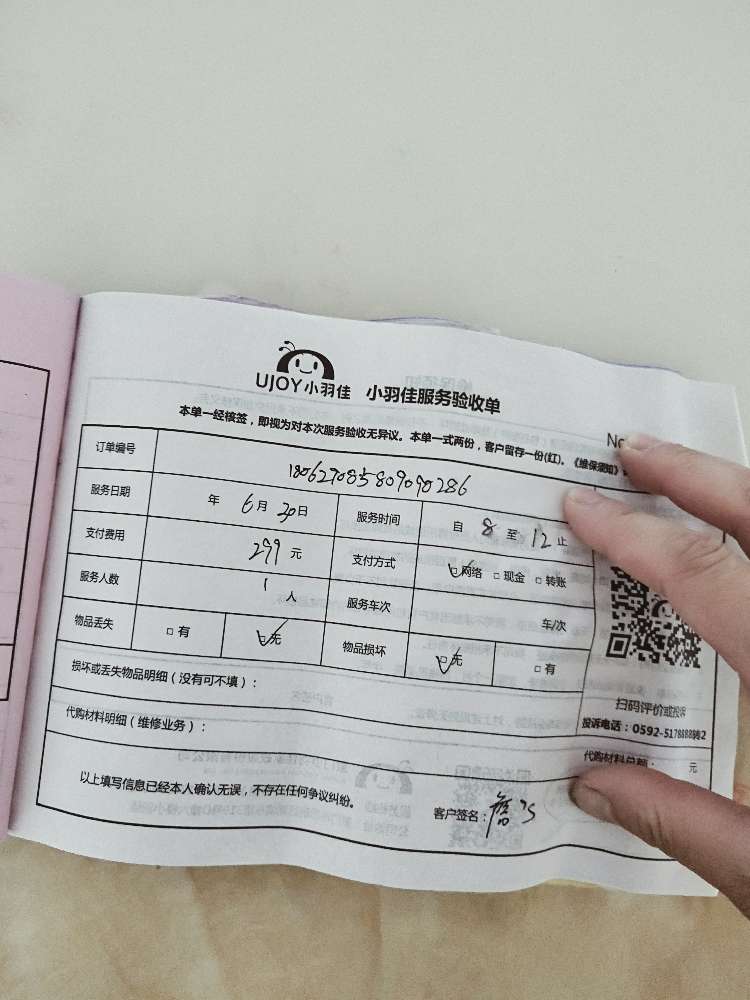 UJOY小羽佳 小羽佳服务验收单
No
本单一经核签，即视为对本次服务验收无异议。本单一式两份，客户留存一份(红)。《维保须知》
订单编号
服务日期 年 6月 30日 服务时间 自 8 至 12 止
支付费用 299 元 支付方式 ☑网络 □现金 □转账
服务人数 1 人 服务车次 车/次
物品丢失 □有 ☑无 物品损坏 ☑无 □有
扫码评价或投诉
损坏或丢失物品明细（没有可不填）：
投诉电话：
代购材料明细（维修业务）： 代购材料总额： 元
以上填写信息已经本人确认无误，不存在任何争议纠纷。 客户签名：